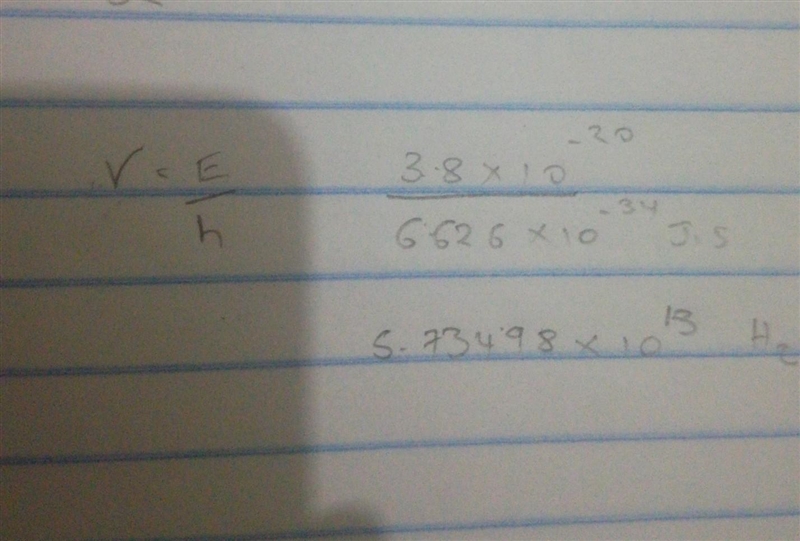 V = E/h    3.8 × 10^-20 / 6.626 × 10^-34 J.s
5.73498 × 10^13 Hz